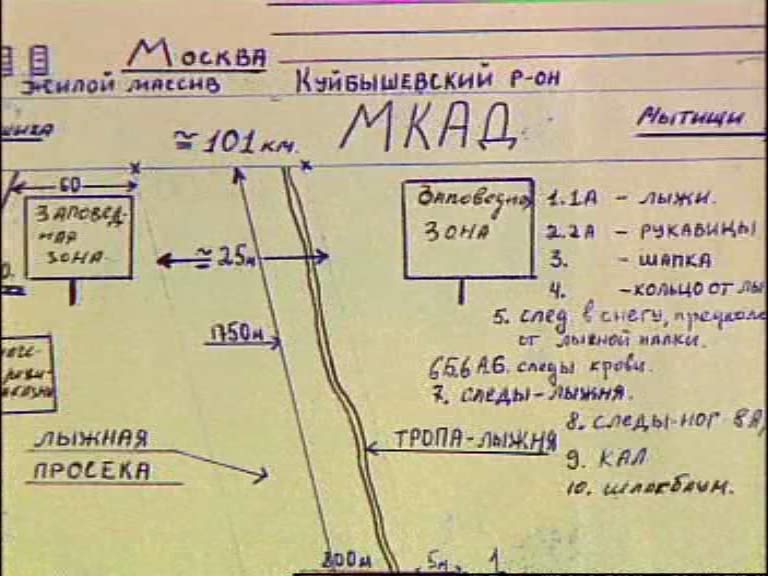 Москва
жилой массив
Куйбышевский р-он
≃101 км.
МКАД
Мытищи
60
Заповед-
ная
зона
≃25м
Заповедно
зона
1.1А - лыжи.
2.2А - рукавицы
3. - шапка
4. - кольцо от лы
5. след в снегу,
от лыжной палки.
следы крови.
7. следы-лыжня.
8. следы-ног 8А
9. кал
10. шлакбаум.
1750м
лыжная
просека
тропа-лыжня
300м
5м
1